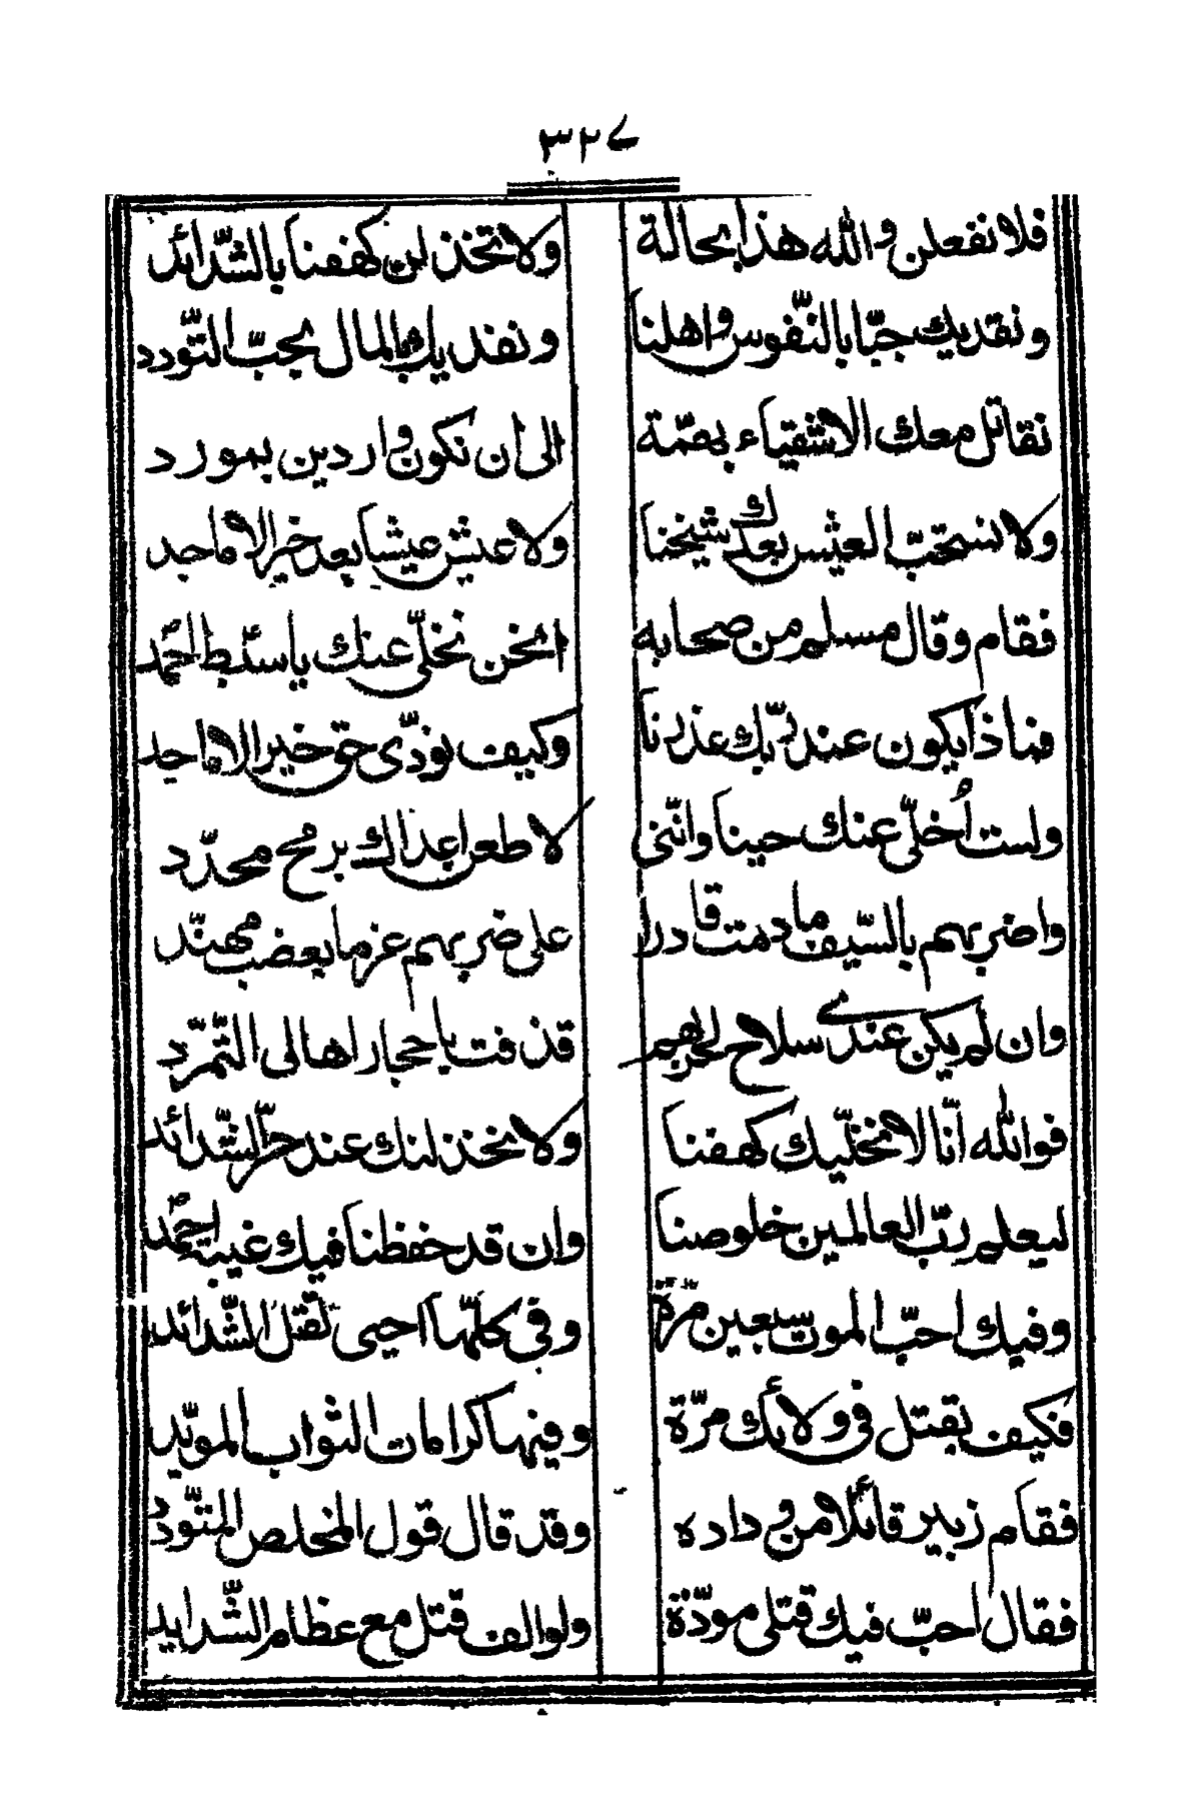 ٣٢٧
فلا نفعلن والله هذا بحالة ولا تخذلن كهفنا بالشّدائد
ونفديك حبّا بالنّفوس واهلنا ونفديك بالمال بحبّ التّودد
نقاتل معك الاشقياء بهمّة الى ان نكون واردين بمورد
ولا نستحبّ العيش بعدك شيخنا ولا عيش عيشا بعد خير الاماجد
فقام وقال مسلم من صحابه انحن نخلّى عنك ياسبط احمد
فماذا يكون عند ربّك عذرنا وكيف نودّى حق خير الاماجد
ولست اُخلّى عنك حينا وانّنى لا طعن اعداك برمح محدّد
واضربهم بالسّيف مادمت قادرا على ضربهم عزما بعضب مهنّد
وان لم يكن عندى سلاح لحربهم قذفت باحجار اهالى التّمرّد
فوالله انّا لا نخلّيك كهفنا ولا نخذلنك عند حرّ الشّدائد
ليعلم ربّ العالمين خلوصنا وان قد حفظنا فيك غيبة احمد
وفيك احبّ الموت سبعين مرّة وفى كلّها احيى لقتل الشّدائد
فكيف بقتل فى ولائك مرّة وفيها كرامات الثواب المويّد
فقام زبير قائلا من وداده وقد قال قول المخلص المتودّد
فقال احبّ فيك قتلى مودّة ولو الف قتل مع عظام الشّدايد